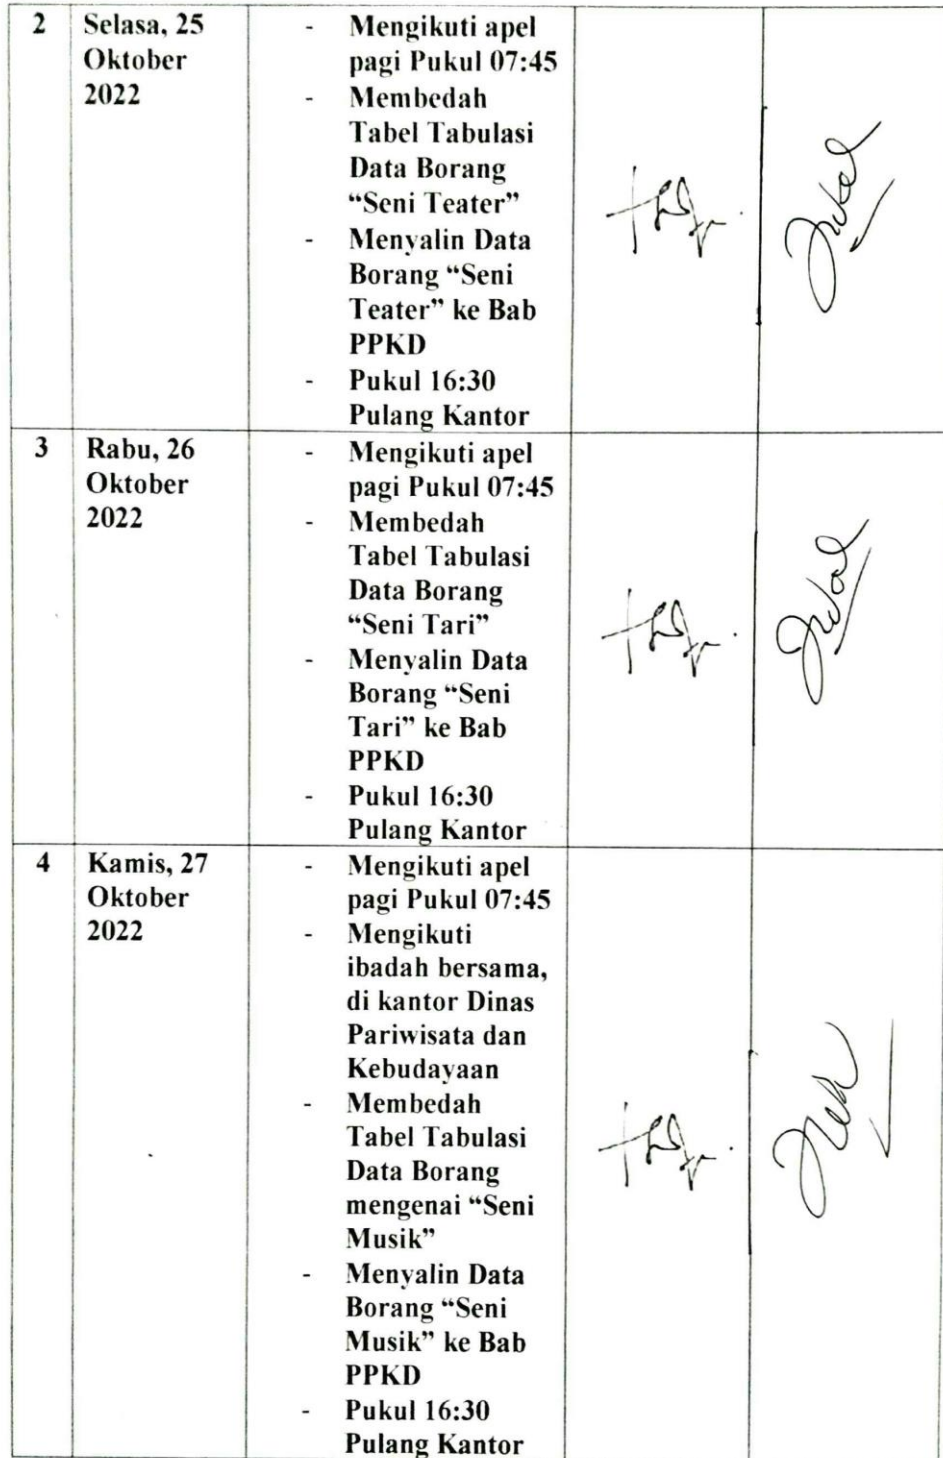 2 Selasa, 25 - Mengikuti apel
Oktober pagi Pukul 07:45
2022 - Membedah
Tabel Tabulasi
Data Borang
“Seni Teater”
- Menyalin Data
Borang “Seni
Teater” ke Bab
PPKD
- Pukul 16:30
Pulang Kantor
3 Rabu, 26 - Mengikuti apel
Oktober pagi Pukul 07:45
2022 - Membedah
Tabel Tabulasi
Data Borang
“Seni Tari”
- Menyalin Data
Borang “Seni
Tari” ke Bab
PPKD
- Pukul 16:30
Pulang Kantor
4 Kamis, 27 - Mengikuti apel
Oktober pagi Pukul 07:45
2022 - Mengikuti
ibadah bersama,
di kantor Dinas
Pariwisata dan
Kebudayaan
- Membedah
Tabel Tabulasi
Data Borang
mengenai “Seni
Musik”
- Menyalin Data
Borang “Seni
Musik” ke Bab
PPKD
- Pukul 16:30
Pulang Kantor